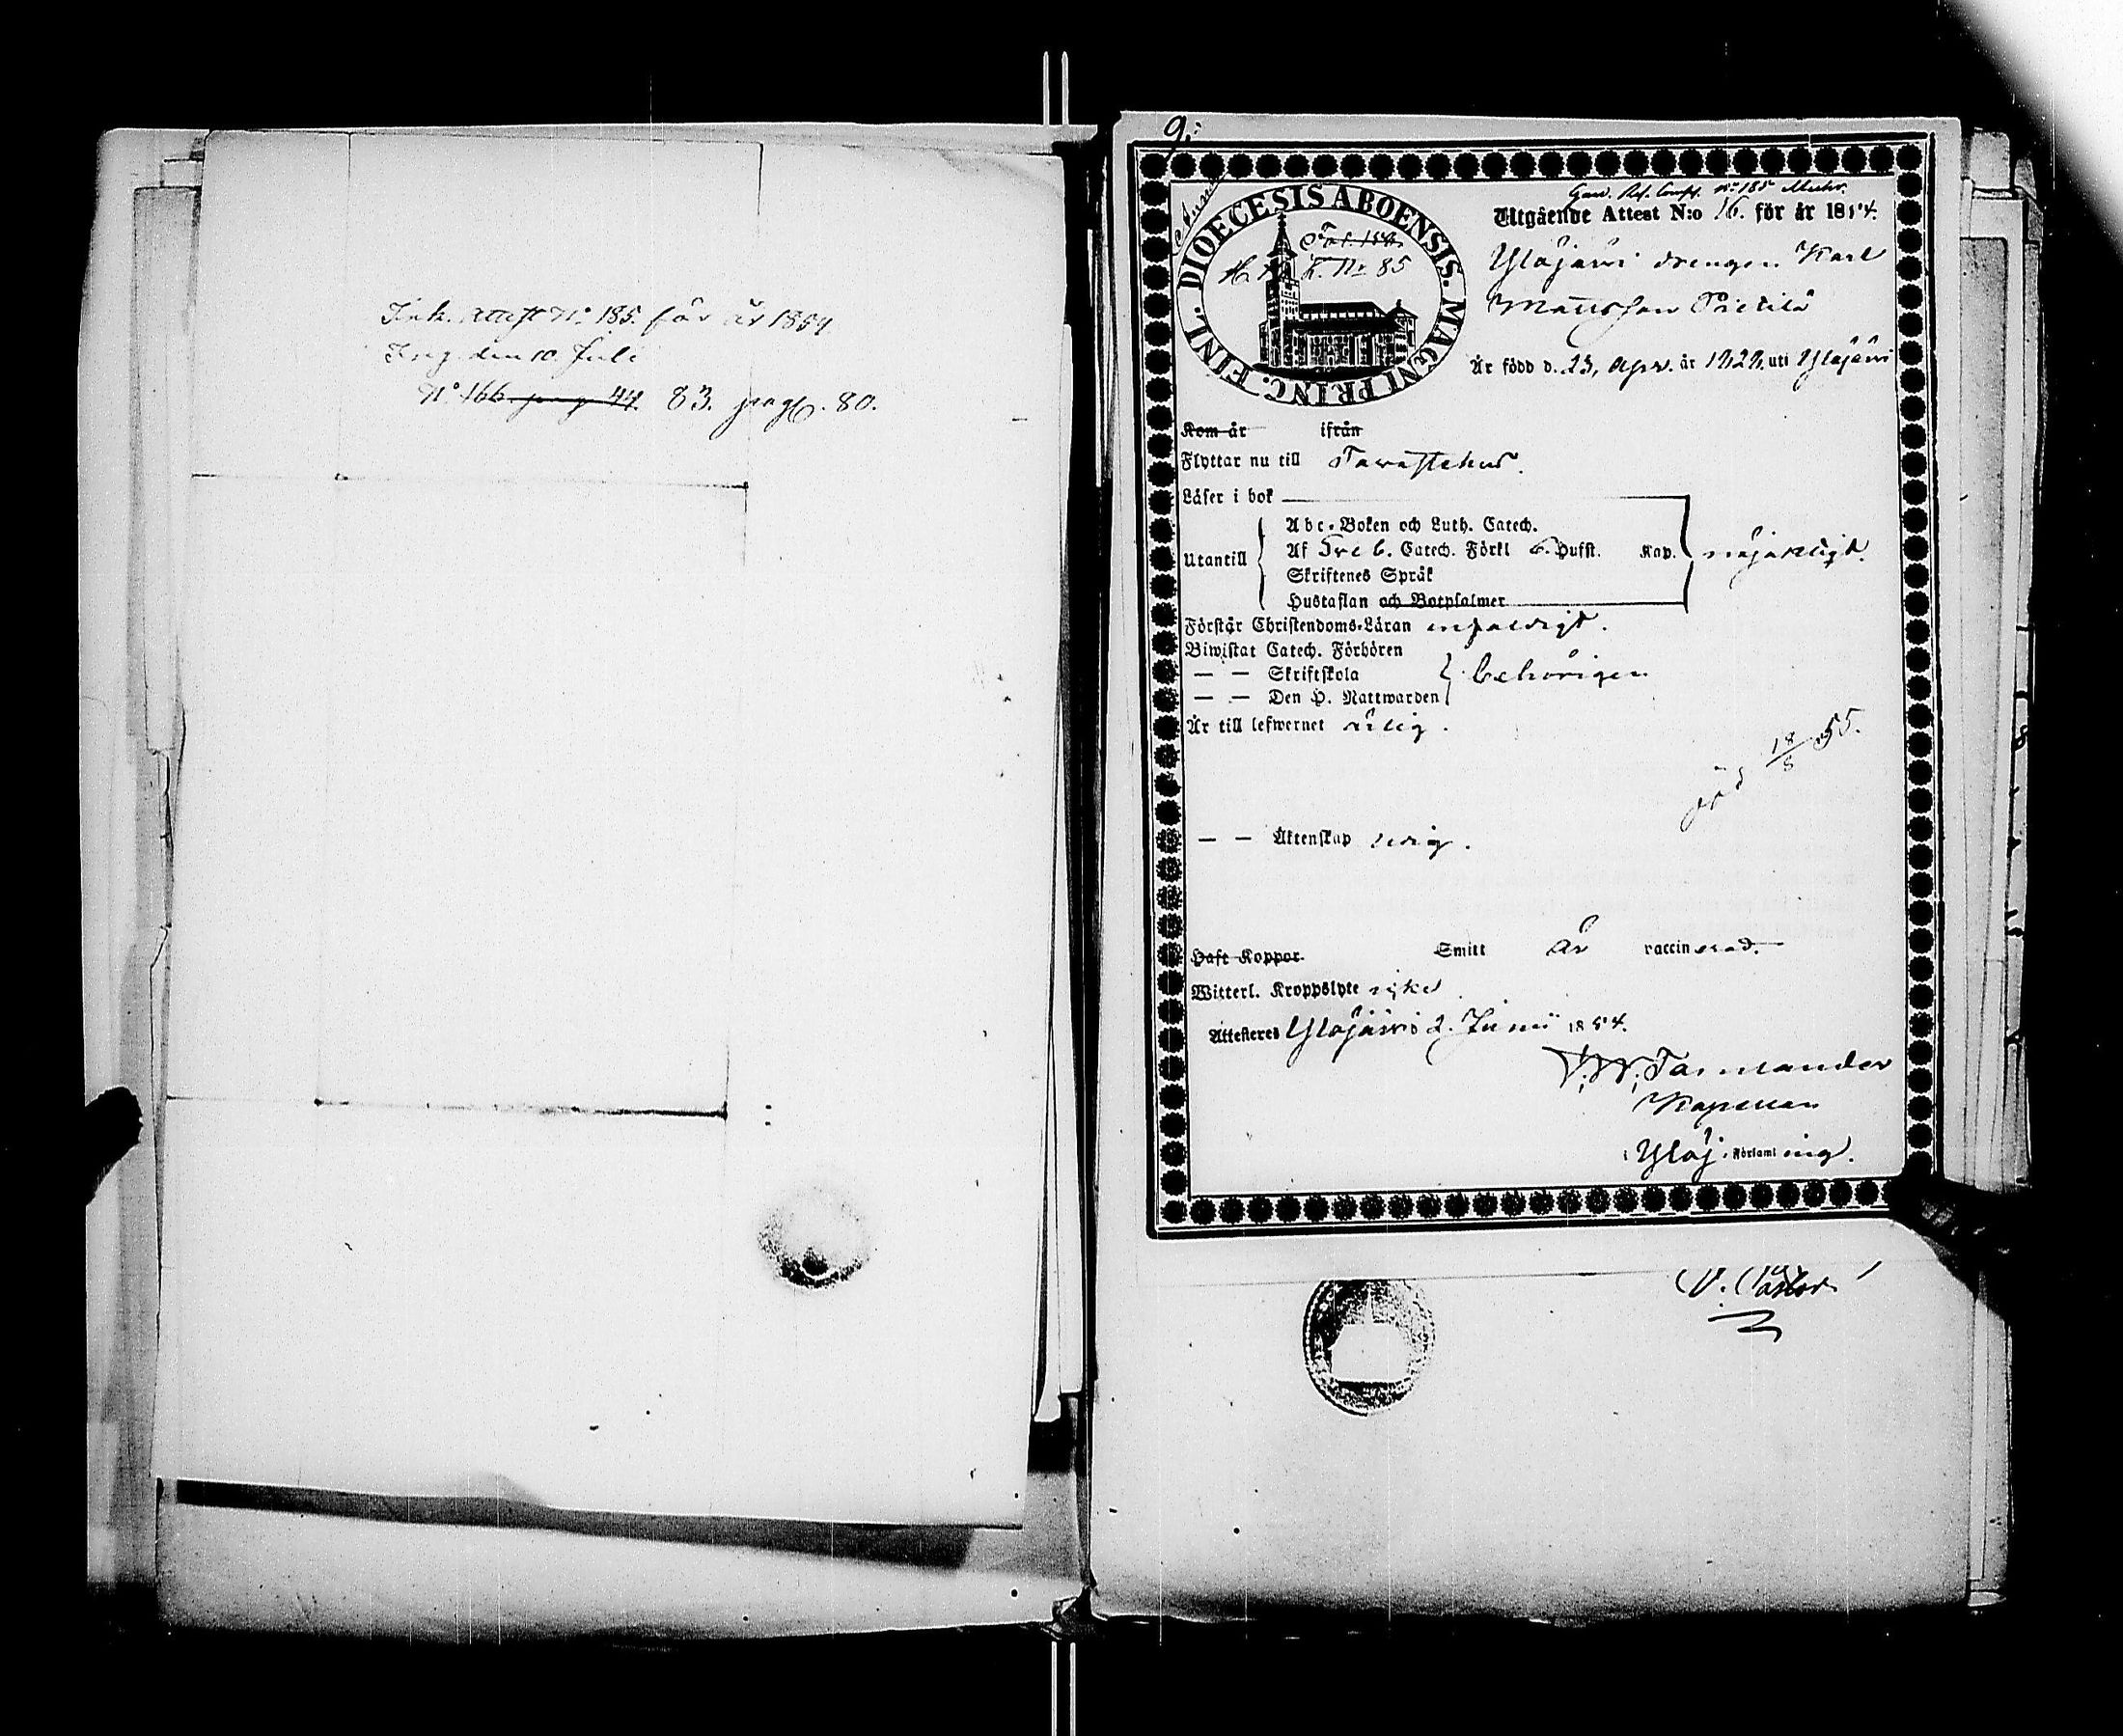 Ink. Attest No 185. för år 1854
Ing. den 10. Juli
No 166 pag 44. 83. pag. 80.
9.
DIOECESIS ABOENSIS. MAGNI PRINC. FINL.
Fol. 158.
No 85
No 185
Utgående Attest N:o 16. för år 1854.
Ylöjärvi drengen Karl
Mattsson Pietilä
Är född d. 23, Apr. år 1828. uti Ylöjärvi
Kom år ifrån
Flyttar nu till Tavastehus.
Läser i bok
Abc-Boken och Luth. Catech.
Utantill Af Sve b. Catech. Förkl 6. Hufst. Kap. nöjaktigt.
Skriftenes Språk
Hustaflan och Botpsalmer
Förstår Christendoms-Läran enfaldigt.
Biwistat Catech. Förhören
— — Skriftskola behörigen
— — Den H. Nattwarden
Är till lefwernet ärlig.
död 18/5 55.
— — Äktenskap ledig.
Haft Koppor Smitt är vaccinerad.
Witterl. Kroppslyte icke
Attesteres Ylöjärvi 2. Junii 1854.
Kapellan
i Ylöj. Församling.
V. Pastor